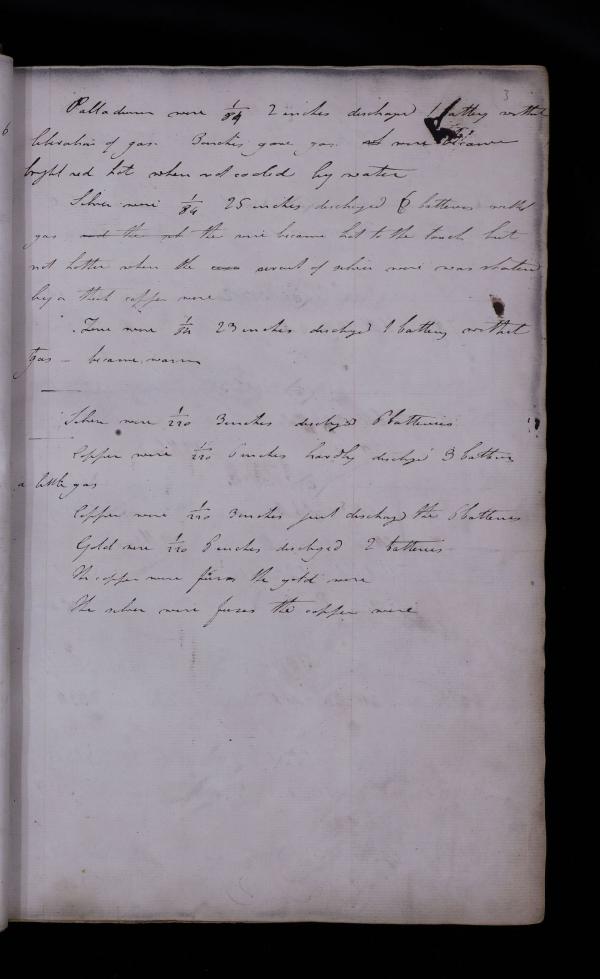 3
Palladium wire 1/84 2 inches discharged 1 battery without
liberation of gas. 3 inches gave gas. wire became
bright red hot when not cooled by water
Silver wire 1/84 25 inches discharged 6 batteries without
gas the wire became hot to the touch but
not hotter when the circuit of silver wire was shortened
by a thick copper wire
Zinc wire 1/84 23 inches discharged 1 battery without
gas — became warm
Silver wire 1/220 3 inches discharged 6 batteries
Copper wire 1/220 6 inches hardly discharged 3 batteries
a little gas
Copper wire 1/220 3 inches just discharged the 6 batteries
Gold wire 1/220 6 inches discharged 2 batteries
The copper wire fuses the gold wire
The silver wire fuses the copper wire